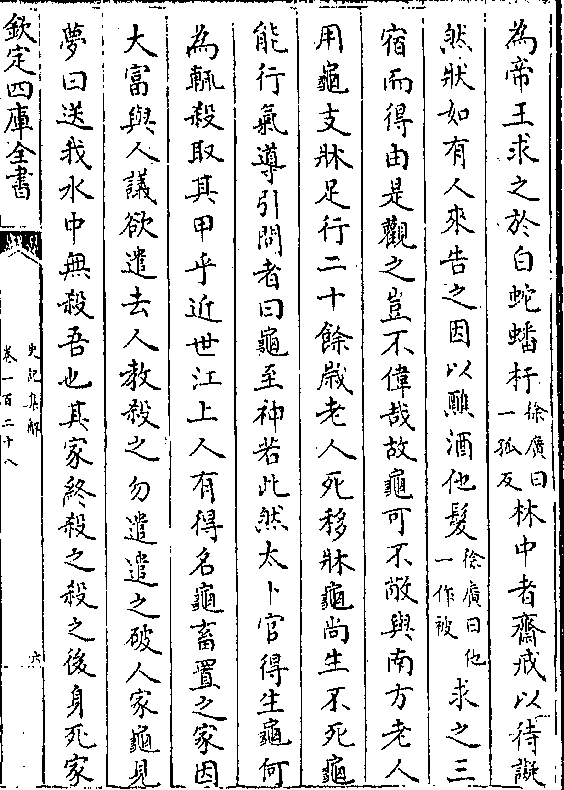 為帝王求之於白蛇蟠杅徐廣曰一孤反林中者齋戒以待譺
然狀如有人來告之因以醮酒佗髮徐廣曰他一作被求之三
宿而得由是觀之豈不偉哉故龜可不敬與南方老人
用龜支牀足行二十餘歲老人死移牀龜尚生不死龜
能行氣導引問者曰龜至神若此然太卜官得生龜何
為輒殺取其甲乎近世江上人有得名龜畜置之家因
大富與人議欲遣去人教殺之勿遣遣之破人家龜見
夢曰送我水中無殺吾也其家終殺之殺之後身死家
欽定四庫全書
史記集解
卷一百二十八
六